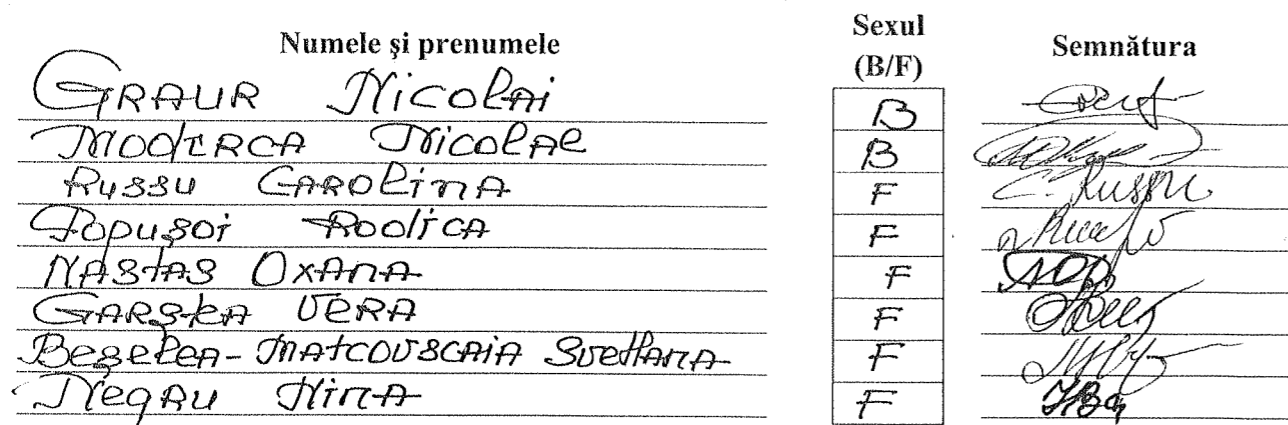 Numele și prenumele Sexul (B/F) Semnătura
GRAUR Nicolai B
Moderca Nicolae B
Russu Carolina F C. Russu
Popușoi Rodica F
Nastas Oxana F
Garska Vera F
Beșelea-Matcovscaia Svetlana F
Negau Nina F